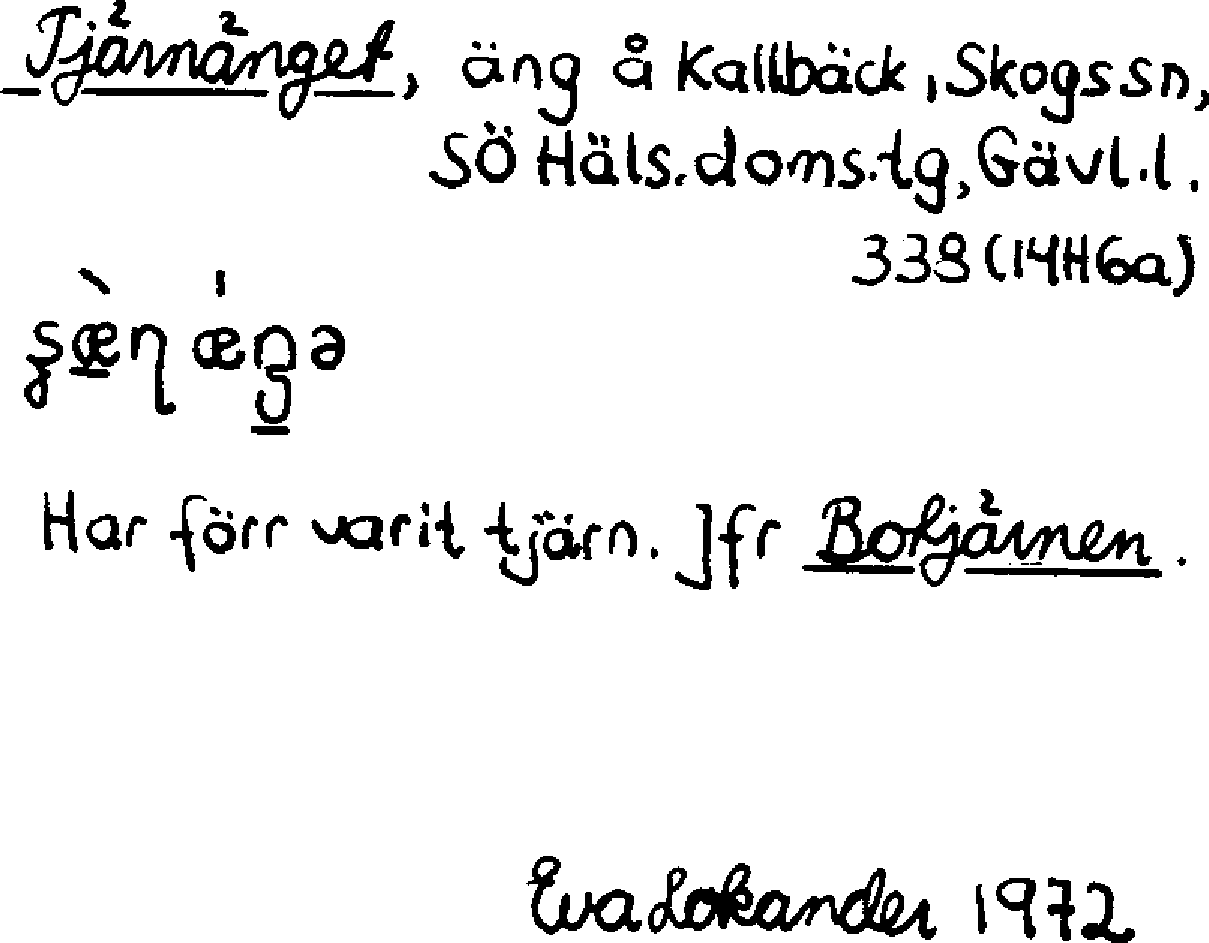 Tjärnänget, äng å Kallbäck, Skogs sn,
SÖ Häls. doms. tg, Gävl. l.
338 (14H6a)
Har förr varit tjärn. Jfr Botjärnen.
Eva Lokander 1972